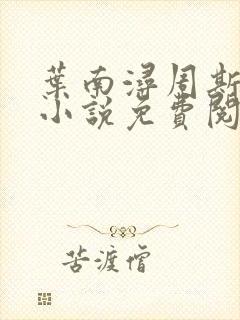 葉南潯周斯
小說免費閱
苦渡僧